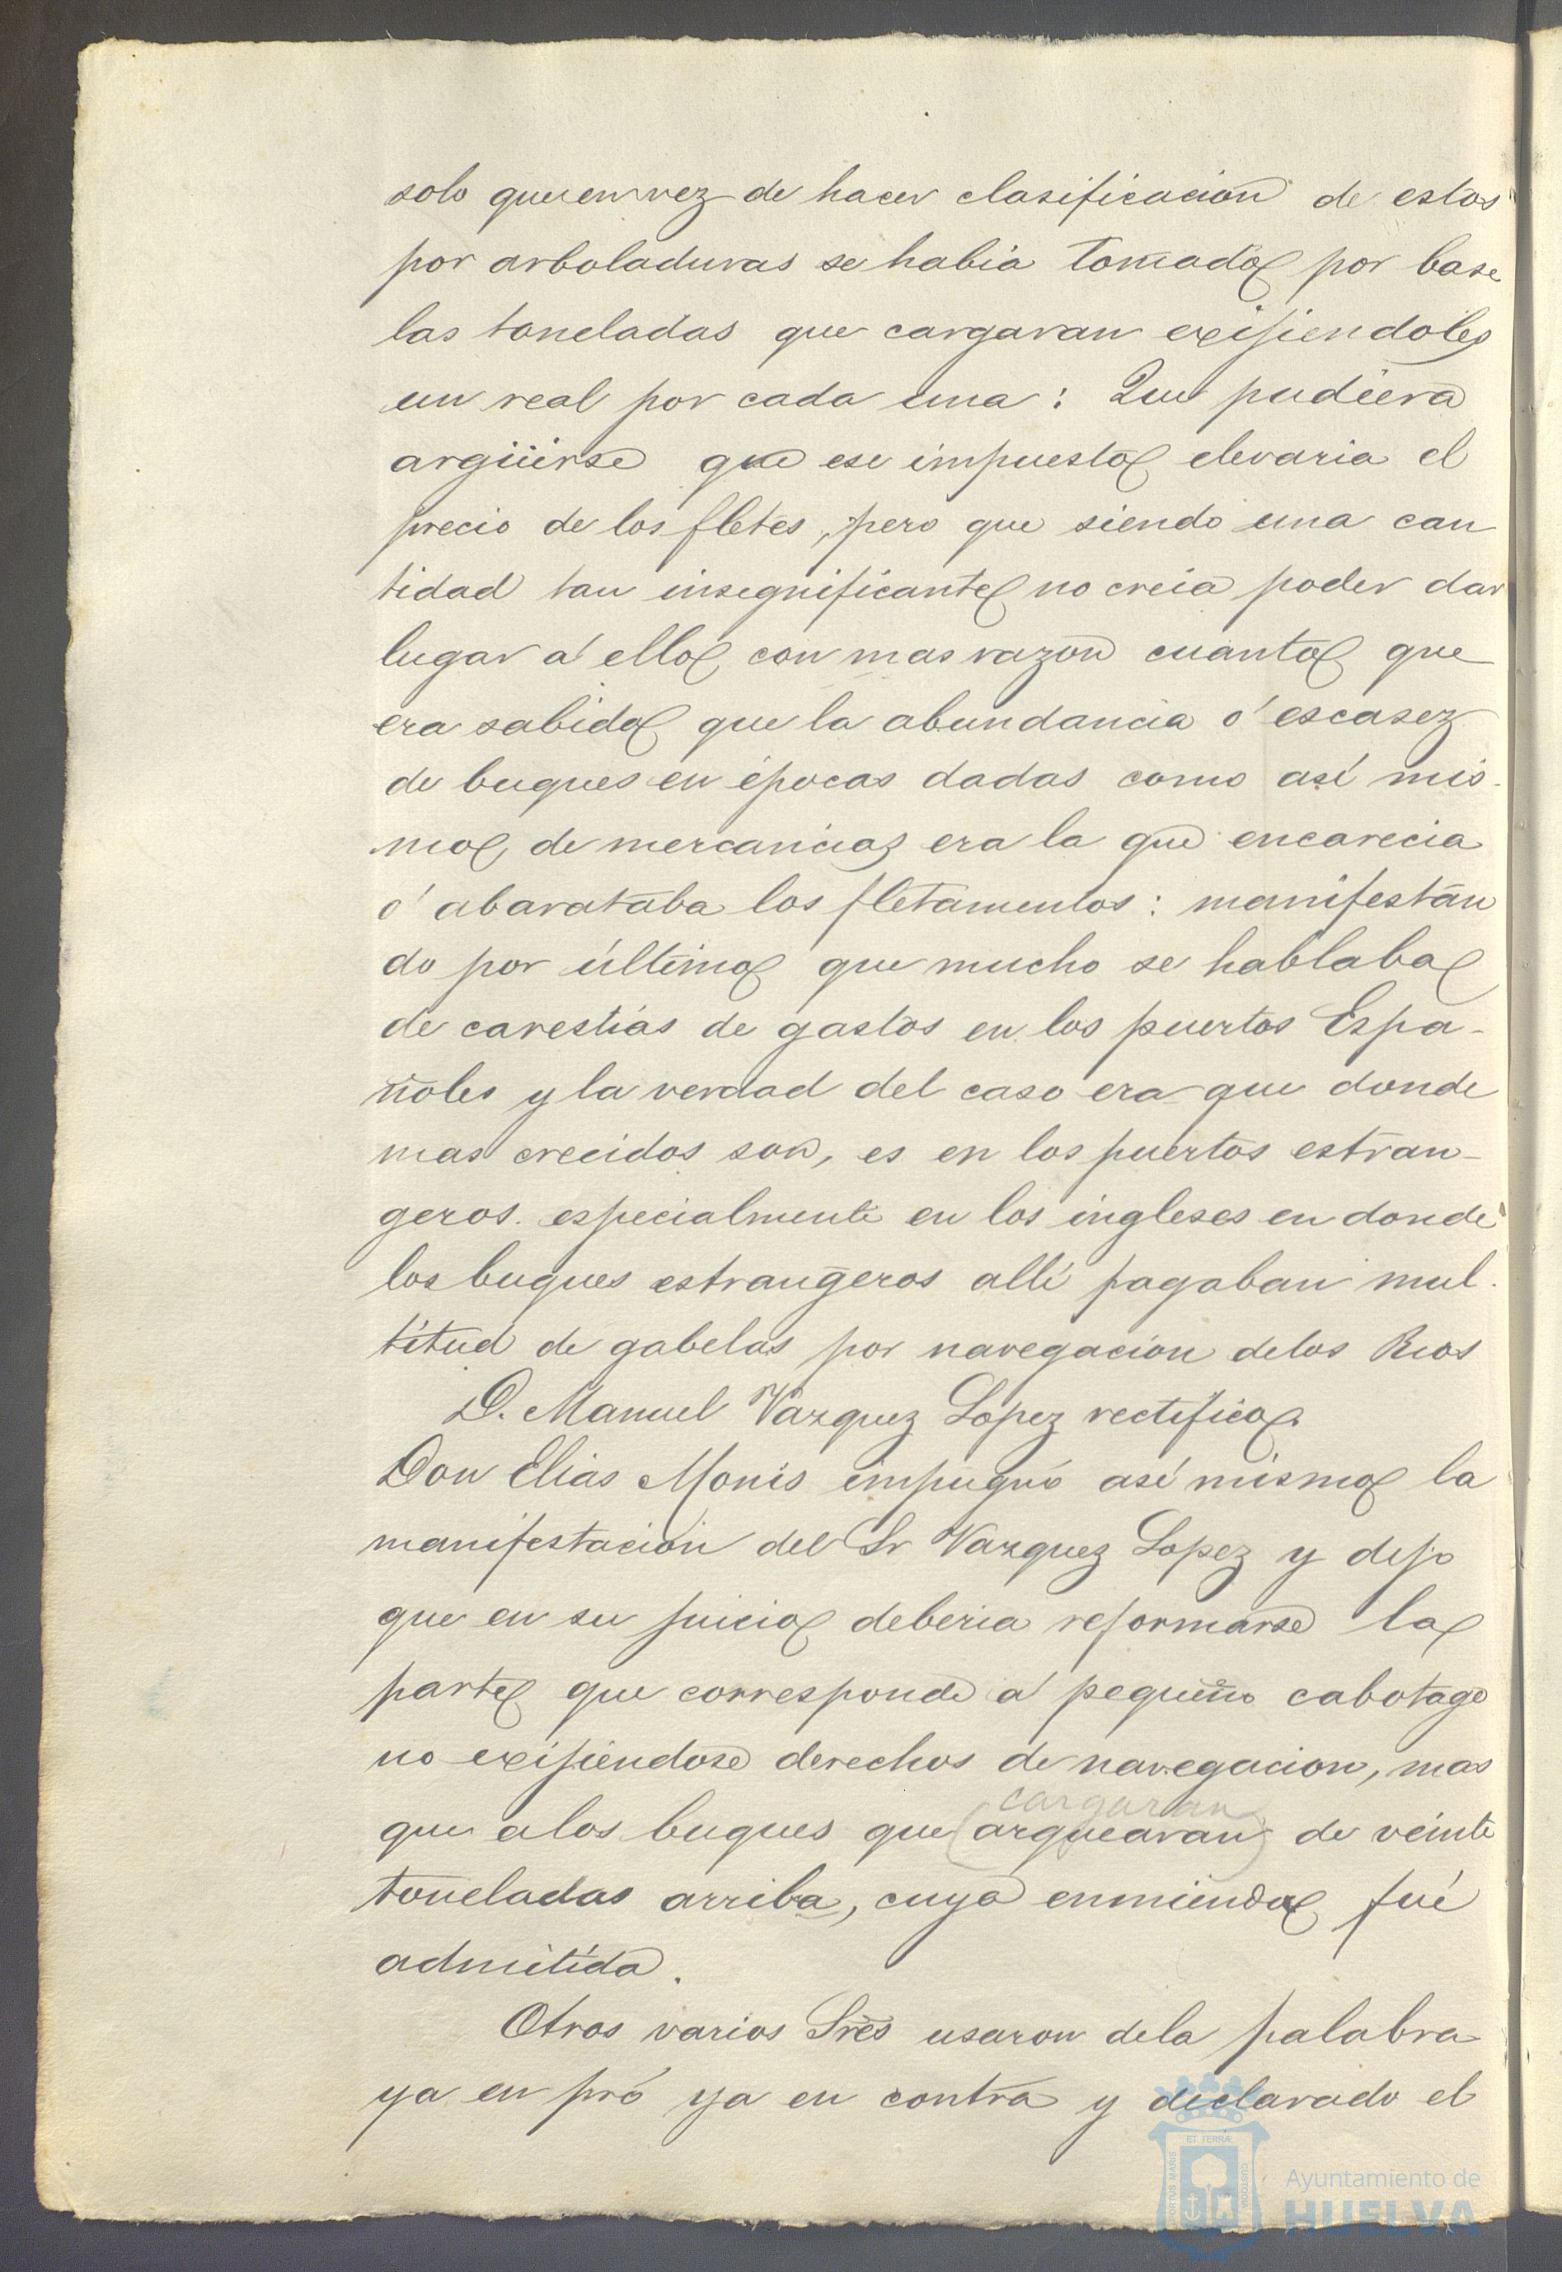 solo que en vez de hacer clasificacion de estos
por arboladuras se habia tomado por base
las toneladas que cargaran exijiendoles
un real por cada una: Que pudiera
argüirse que ese impuesto elevaria el
precio de los fletes, pero que siendo una can
tidad tan insegnificante no creia poder dar
lugar á ello con mas razon cuanto que
era sabido que la abundancia ó escasez
de buques en épocas dadas como asi mis-
mo de mercancias era la que encarecia
ó abarataba los fletamentos: manifestan
do por último que mucho se hablaba
de carestias de gastos en los puertos Espa-
ñoles y la verdad del caso era que donde
mas crecidos son, es en los puertos estran-
geros especialmente en los ingleses en donde
los buques estrangeros alli pagaban mul-
titud de gabelas por navegacion de los Rios
D. Manuel Vazquez Lopez rectifico.
Don Elias Monis impugnó asi mismo la
manifestacion del Sr Vazquez Lopez y dijo
que en su juicio deberia reformarse la
parte que corresponde á pequeño cabotage
no exijiendose derechos de navegacion, mas
cargaran
que a los buques que (arquearan) de veinte
toneladas arriba, cuya enmienda fué
admitida.
Otros varios Sres usaron de la palabra
ya en pró ya en contra y declarado el
PORTUS MARIS ET TERRÆ CUSTODIA
Ayuntamiento de
HUELVA